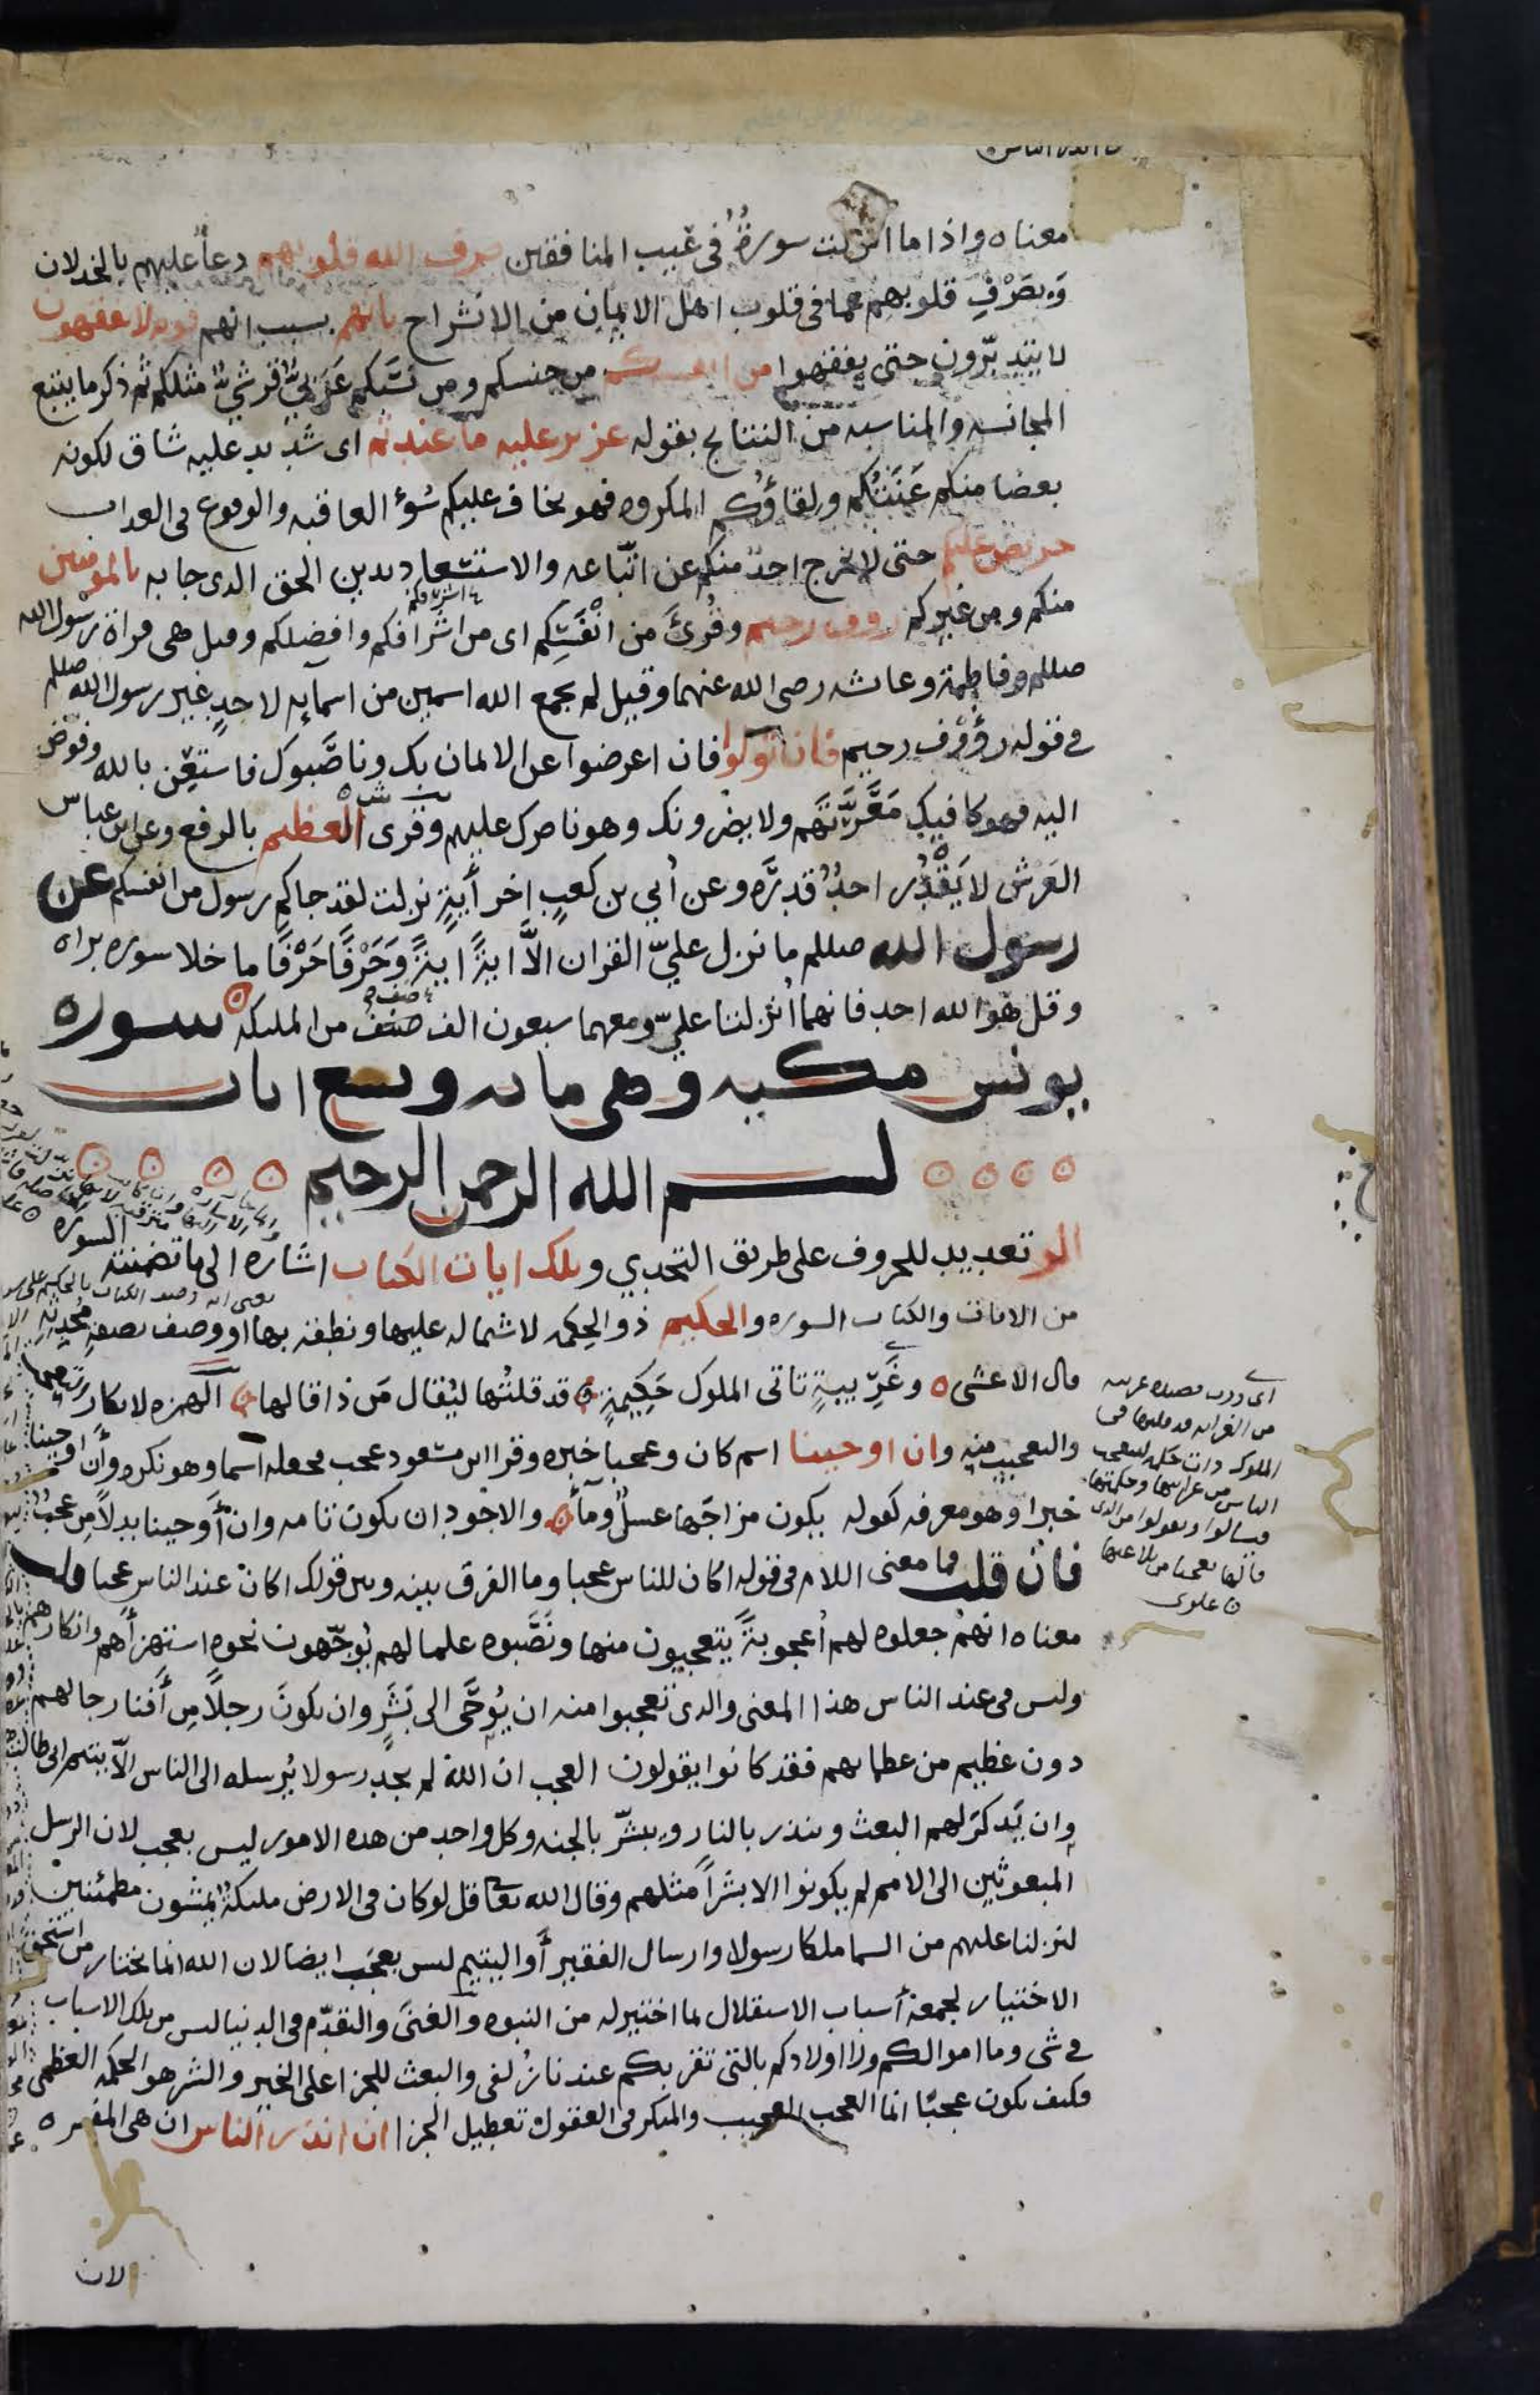 معناه واذا ما انزلت سورةٌ فى عَيب المنافقين صرف الله قلوبهم دعاٌ عليهم بالخذلان
وَبِصَرْفِ قلوبهم عما فى قلوب اهل الايمان من الانشراح بانهم بسبب انهم قوم لا يفقهون
لا يتدبّرون حتى يفقهوا من انفسكم من جنسكم ومن نسَبكم عَرَبيٌّ قرشيٌّ مثلكم ثم ذكر ما يتبع
المجانسه والمناسبه من النتائج بقوله عزيز عليه ما عنتم اى شديد عليه شاق لكونه
بعضا منكم عَنَتُكم ولقاؤُكم المكروه فهو يخاف عليكم سُوءَ العاقبه والوقوع فى العداب
حريص عليكم حتى لا يخرج احدٌ منكم عن اتّباعه والاستسعاد بدين الحق الدى جا به بالمومنين
منكم ومن غيركم رووف رحيم وقُرِئَ من انْفَسِكم اى من اشرافكم وافضلكم وقيل هى قراة رسول الله
صللم وفاطمة وعاىشه رضى الله عنهما وقيل لم يجمع الله اسمين من اسمايه لاحدٍ غير رسول الله صللم
فى قوله رؤُوْف رحيم فان تولوا فان اعرضوا عن الايمان بك وناصَّبوك فاستعِن بالله وفوّض
اليه فهو كافيك مَعَرَّتَهم ولا يضرونك وهو ناصرك عليهم وقرى العظيم بالرفع وعن ابن عباس
العَرْش لا يَقْدُر احدٌ قدرَه وعن اُبي بن كعبٍ اخر أيةٍ نزلت لقد جاكم رسول من انفسكم عن
رسول الله صللم ما نزل عليّ القران الاَّ ايةً ايةً وَحَرْفًا حَرْفًا ما خلا سوره براه
وقل هو الله احد فانهما اُنزلتا عليّ ومعهما سبعون الف صنف من المليكه سوره
يونس مكيه وهى مايه وتسع ايات
بسم الله الرحمن الرحيم
الر تعديد للحروف على طريق التحدي وتلك ايات الكتاب اشاره الى ما تضمنته السورة
من الايات والكتاب السوره والحكيم ذو الحِكمه لاشتماله عليها ونطقه بها او وصف بصفةِ مُحْدِثِه
قال الاعشى ٥ وغَرِيبةٍ تاتى الملوك حَكِيمةٍ قد قلتُها ليُقال مَن ذا قالها الهمزه لانكار
والتعجيب منه وان اوحينا اسم كان وعجبا خبره وقرا ابن مسعود عجب فجعله اسما وهو نكره وأن اوحينا
خبرا وهو معرفه كقوله يكون مزاجَها عسلٌ وماُ والاجود ان يكون تامه وان أوحينا بدلًا من عجبٌ
فان قلت فما معنى اللام فى قوله اكان للناس عجبا وما الفرق بينه وبين قولك اكان عند الناس عجبا قلت
معناه انهم جعلوه لهم اُعجوبةً يتعجبون منها ونَصَبوه علما لهم يُوجّهون نحوه استهزأهم وانكارهم
وليس فى عند الناس هذا المعنى والدى تعجبوا منه ان يُوحَى الى بَشَرٍ وان يكونَ رجلًا مِن أفنا رجالهم
دون عظيم من عظمايهم فقد كانوا يقولون العجب ان الله لم يجد رسولا يُرسله الى الناس الاّ يتيم ابى طالب
وان يَذكرَ لهم البعث وينذر بالنار ويبشّر بالجنه وكل واحد من هذه الامور ليس بعجب لان الرسل
المبعوثين الى الامم لم يكونوا الا بشراً مثلهم وقال الله تعالى قل لو كان فى الارض مليكةٌ يمشون مطمئنين
لنزلنا عليهم من السما ملكا رسولا وارسال الفقير أو اليتيم ليس بعجَب ايضا لان الله انما يختار من استحق
الاختيار لجمعه أسباب الاستقلال لما اختير له من النبوه والغنَى والتقدّم فى الدنيا ليس من تلك الاسباب
فى شى وما اموالكم ولا اولادكم بالتى تقربكم عندنا زُلفى والبعث للجزا على الخير والشر هو الحكمه العظمى
فكيف يكون عجبًا انما العجب العجيب والمنكر فى العقول تعطيل الجزا ان انذر الناس ان هى المفسره
الان